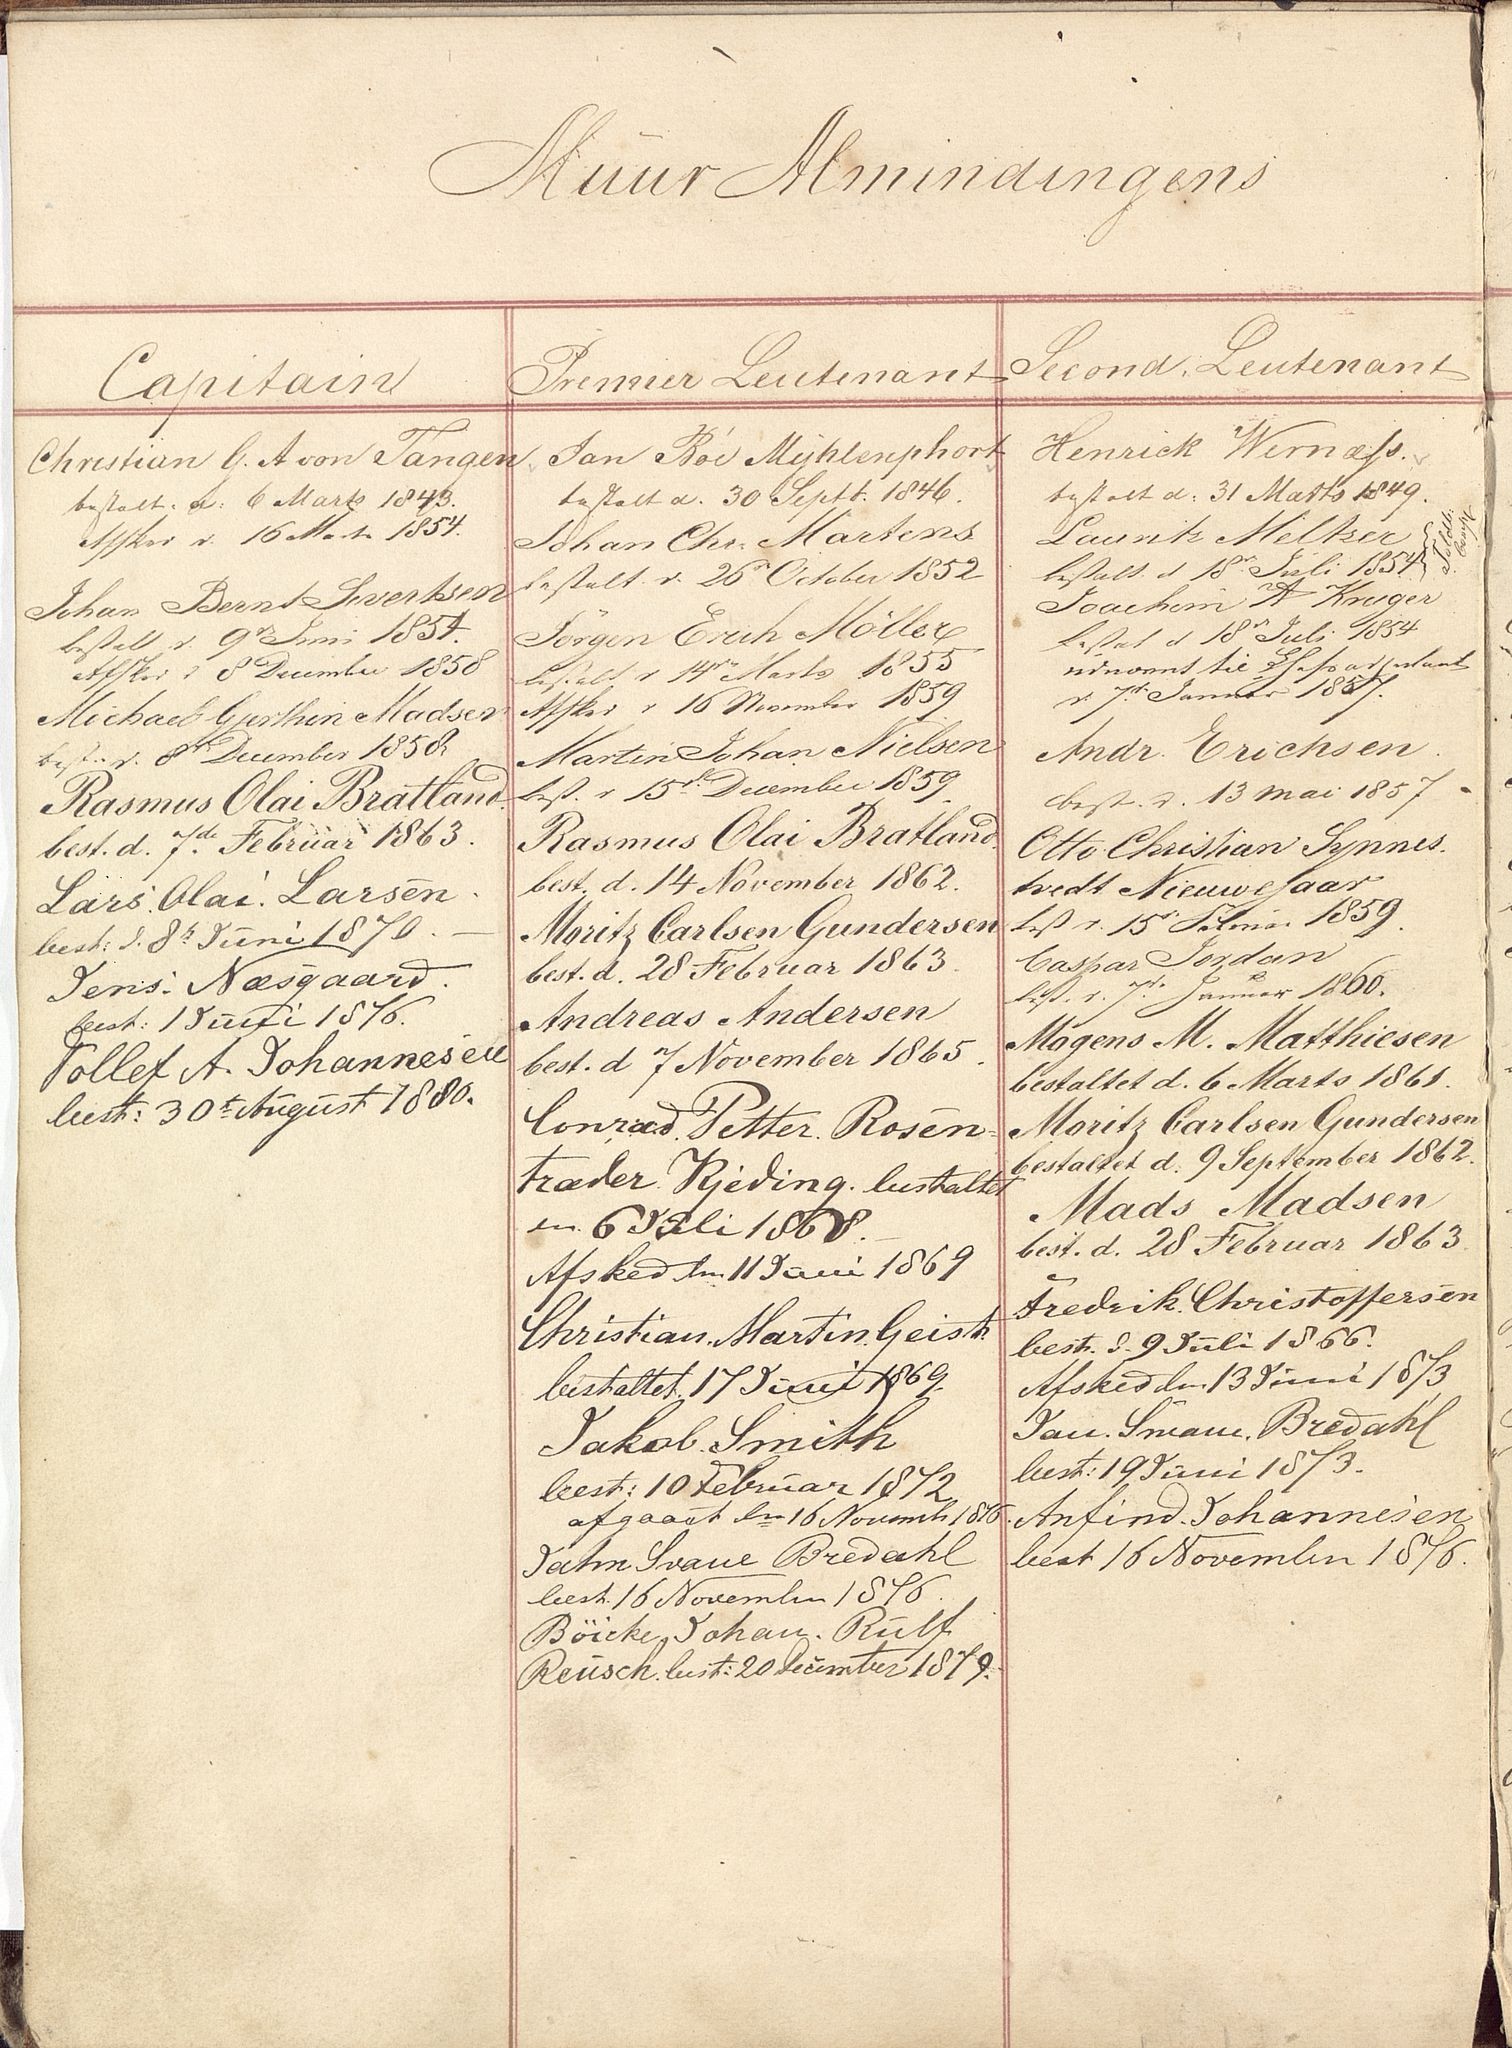 Muur Almindingens
Capitain
Christian G. A von Tangen
bestalt. d. 6 Marts 1843.
Afsked d. 16 Marts 1854.
Johan Bernt Severtsen
bestalt d. 9de Juni 1854.
Afsked d 8de December 1858
Michael Gerthin Madsen
best. d. 8de December 1858
Rasmus Olai Bratland.
best. d. 7de Februar 1863.
Lars. Olai. Larsen.
best: d. 8de Juni 1870.
Jens. Næsgaard.
best: 1 Juni 1876.
Tollef A. Johannesen
best: 30te August 1880.
Premier Leutenant
Jan Böe Mÿhlenphort
bestalt d. 30 Septb. 1846.
Johan Chr. Martens
bestalt d. 26de October 1852
Jörgen Erich Möller
bestalt d 14de Marts 1855
Afsked d 16 November 1859
Martin Johan Nielsen
best. d 15de December 1859.
Rasmus Olai Bratland.
best. d. 14 November 1862.
Moritz Carlsen Gundersen
best. d. 28 Februar 1863.
Andreas Andersen
best. d 7 November 1865.
Conrad. Petter. Rosen-
træder. Kjeding. bestaltet
den 6 Juli 1868.
Afsked den 11 Juni 1869
Christian. Martin. Geist.
bestaltet. 17 Juni 1869.
Jakob. Smith
best: 10 Februar 1872
afgaaet den 16 Novemb. 1876.
Jahn Svane Bredahl
best. 16 November 1876.
Böicke. Johan. Rulf
Reusch. best: 20 December 1879.
Second. Leutenant
Henrick Wernæss.
bestalt d: 31 Marts 1849.
Lauritz Meltzer
bestalt. d 18de Juli 1854
Joachim A Kruger
bestal d 18de Juli 1854
udnævnt til
d. 7de Januar 1857.
Andr. Erichsen.
best. d. 13 mai 1857
Otto Christian Synnes.
tvedt Nieuwejaar
best d. 15de Februar 1859.
Caspar Jordan
best. d. 7de Januar 1860.
Mogens M. Matthiesen
bestaltet d. 6 Marts 1861.
Moritz Carlsen Gundersen
bestaltet d. 9 September 1862.
Mads Madsen
best. d. 28 Februar 1863
Fredrik. Christoffersen
best. d. 9 Juli 1866.
Afsked den 13 Juni 1873
Jan. Svane. Bredahl
best: 19 Juni 1873.
Anfind. Johannesen
best 16 November 1876.